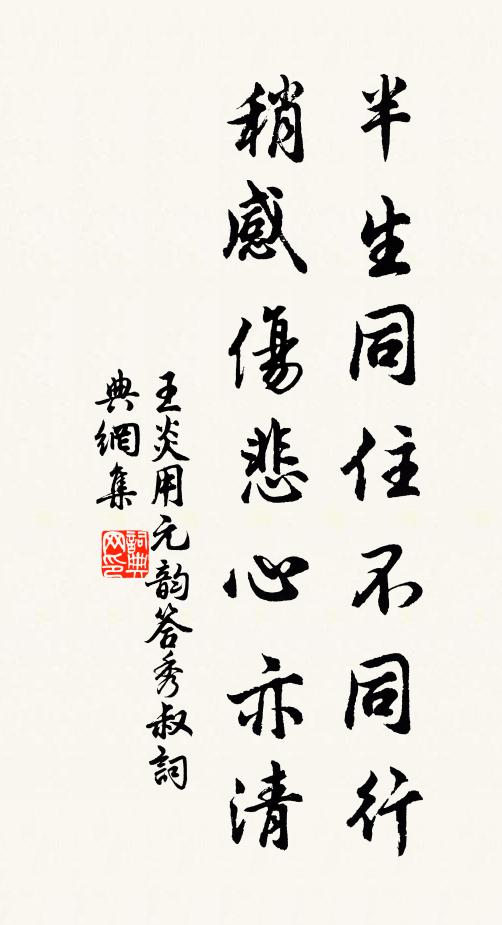 半生同住不同行
稍感傷悲心亦清
王炎用元韵答秀叔詞
典網集
詞典
网印